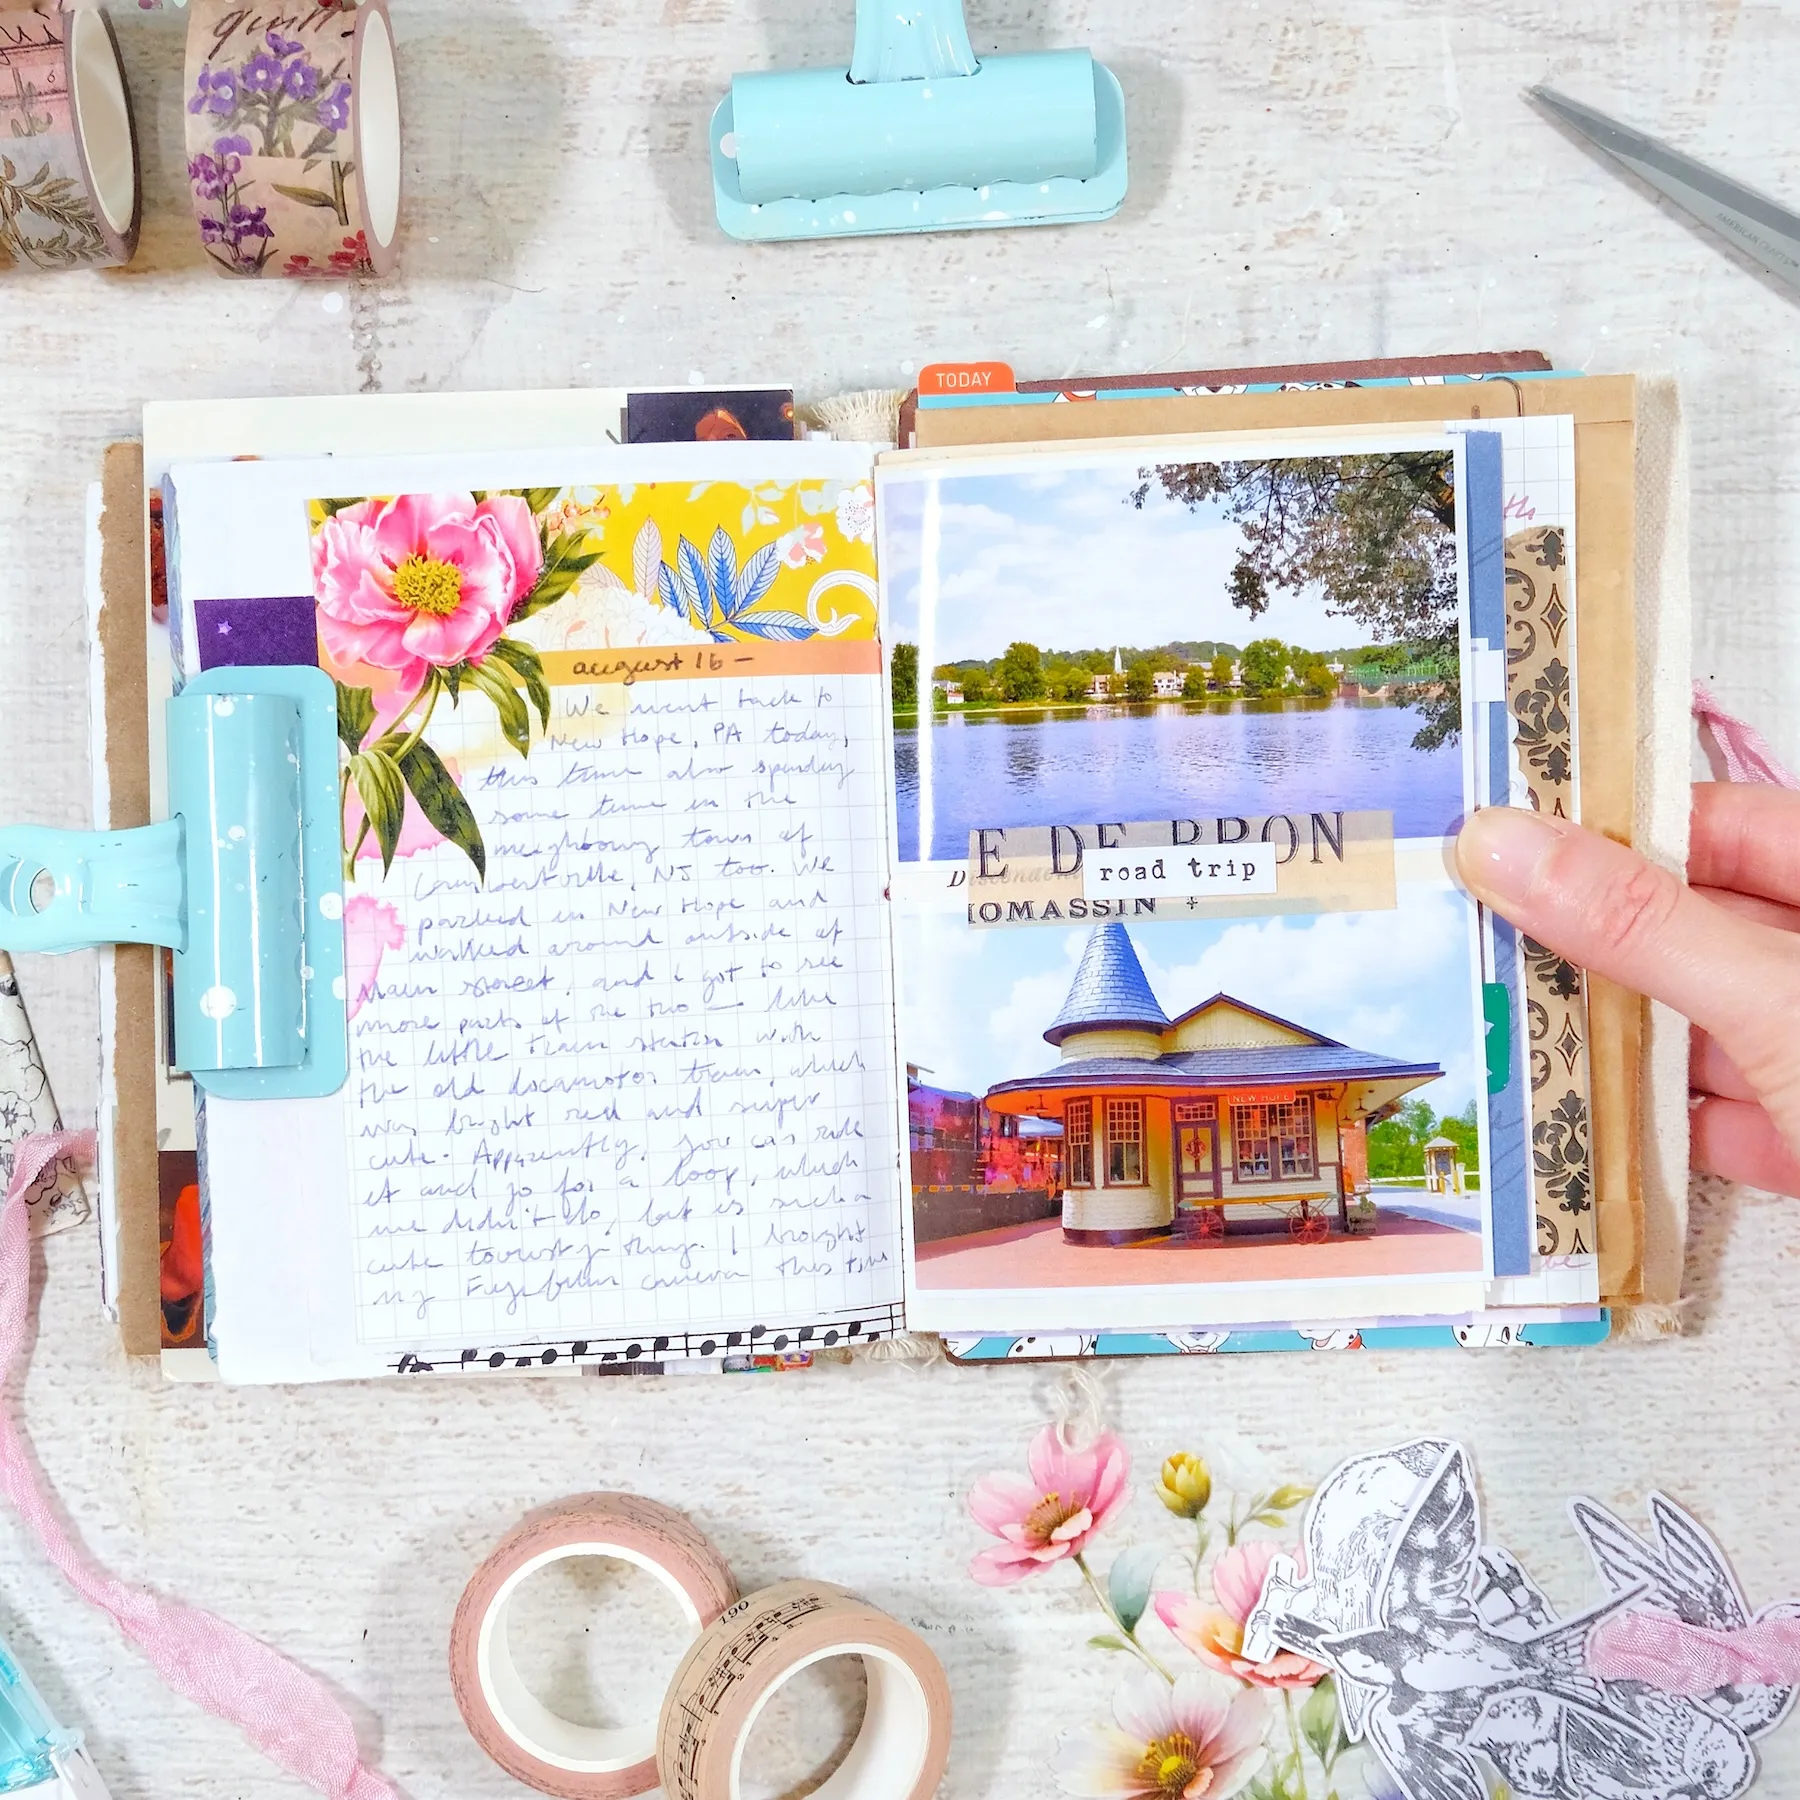 quin
TODAY
august 16 -
We went back to
New Hope, PA today,
this time also spending
some time in the
neighbouring town of
Lambertville, NJ too. We
parked in New Hope and
walked around outside of
main street, and i got to see
more parts of the two — like
the little train station with
the old locomotor train, which
was bright red and super
cute. Apparently, you can ride
it and go for a loop, which
we didn't do, but is such a
cute touristy thing. I brought
my Fuji film camera this time
E DE BRON
road trip
IOMASSIN +
NEW HOPE
AMERICAN CRAFTS
190